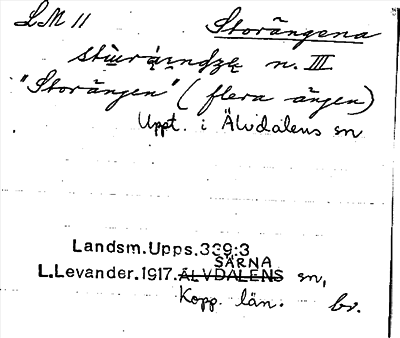 LM 11 Storängena
n. III
"Storängen" (flera ängen)
Uppt. i Älvdalens sn
Landsm.Upps.339:3
SÄRNA
L.Levander.1917. ÄLVDALENS sn,
Kopp. län. br.